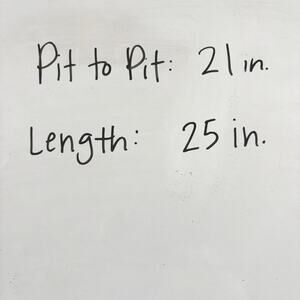 Pit to Pit: 21 in.
Length: 25 in.